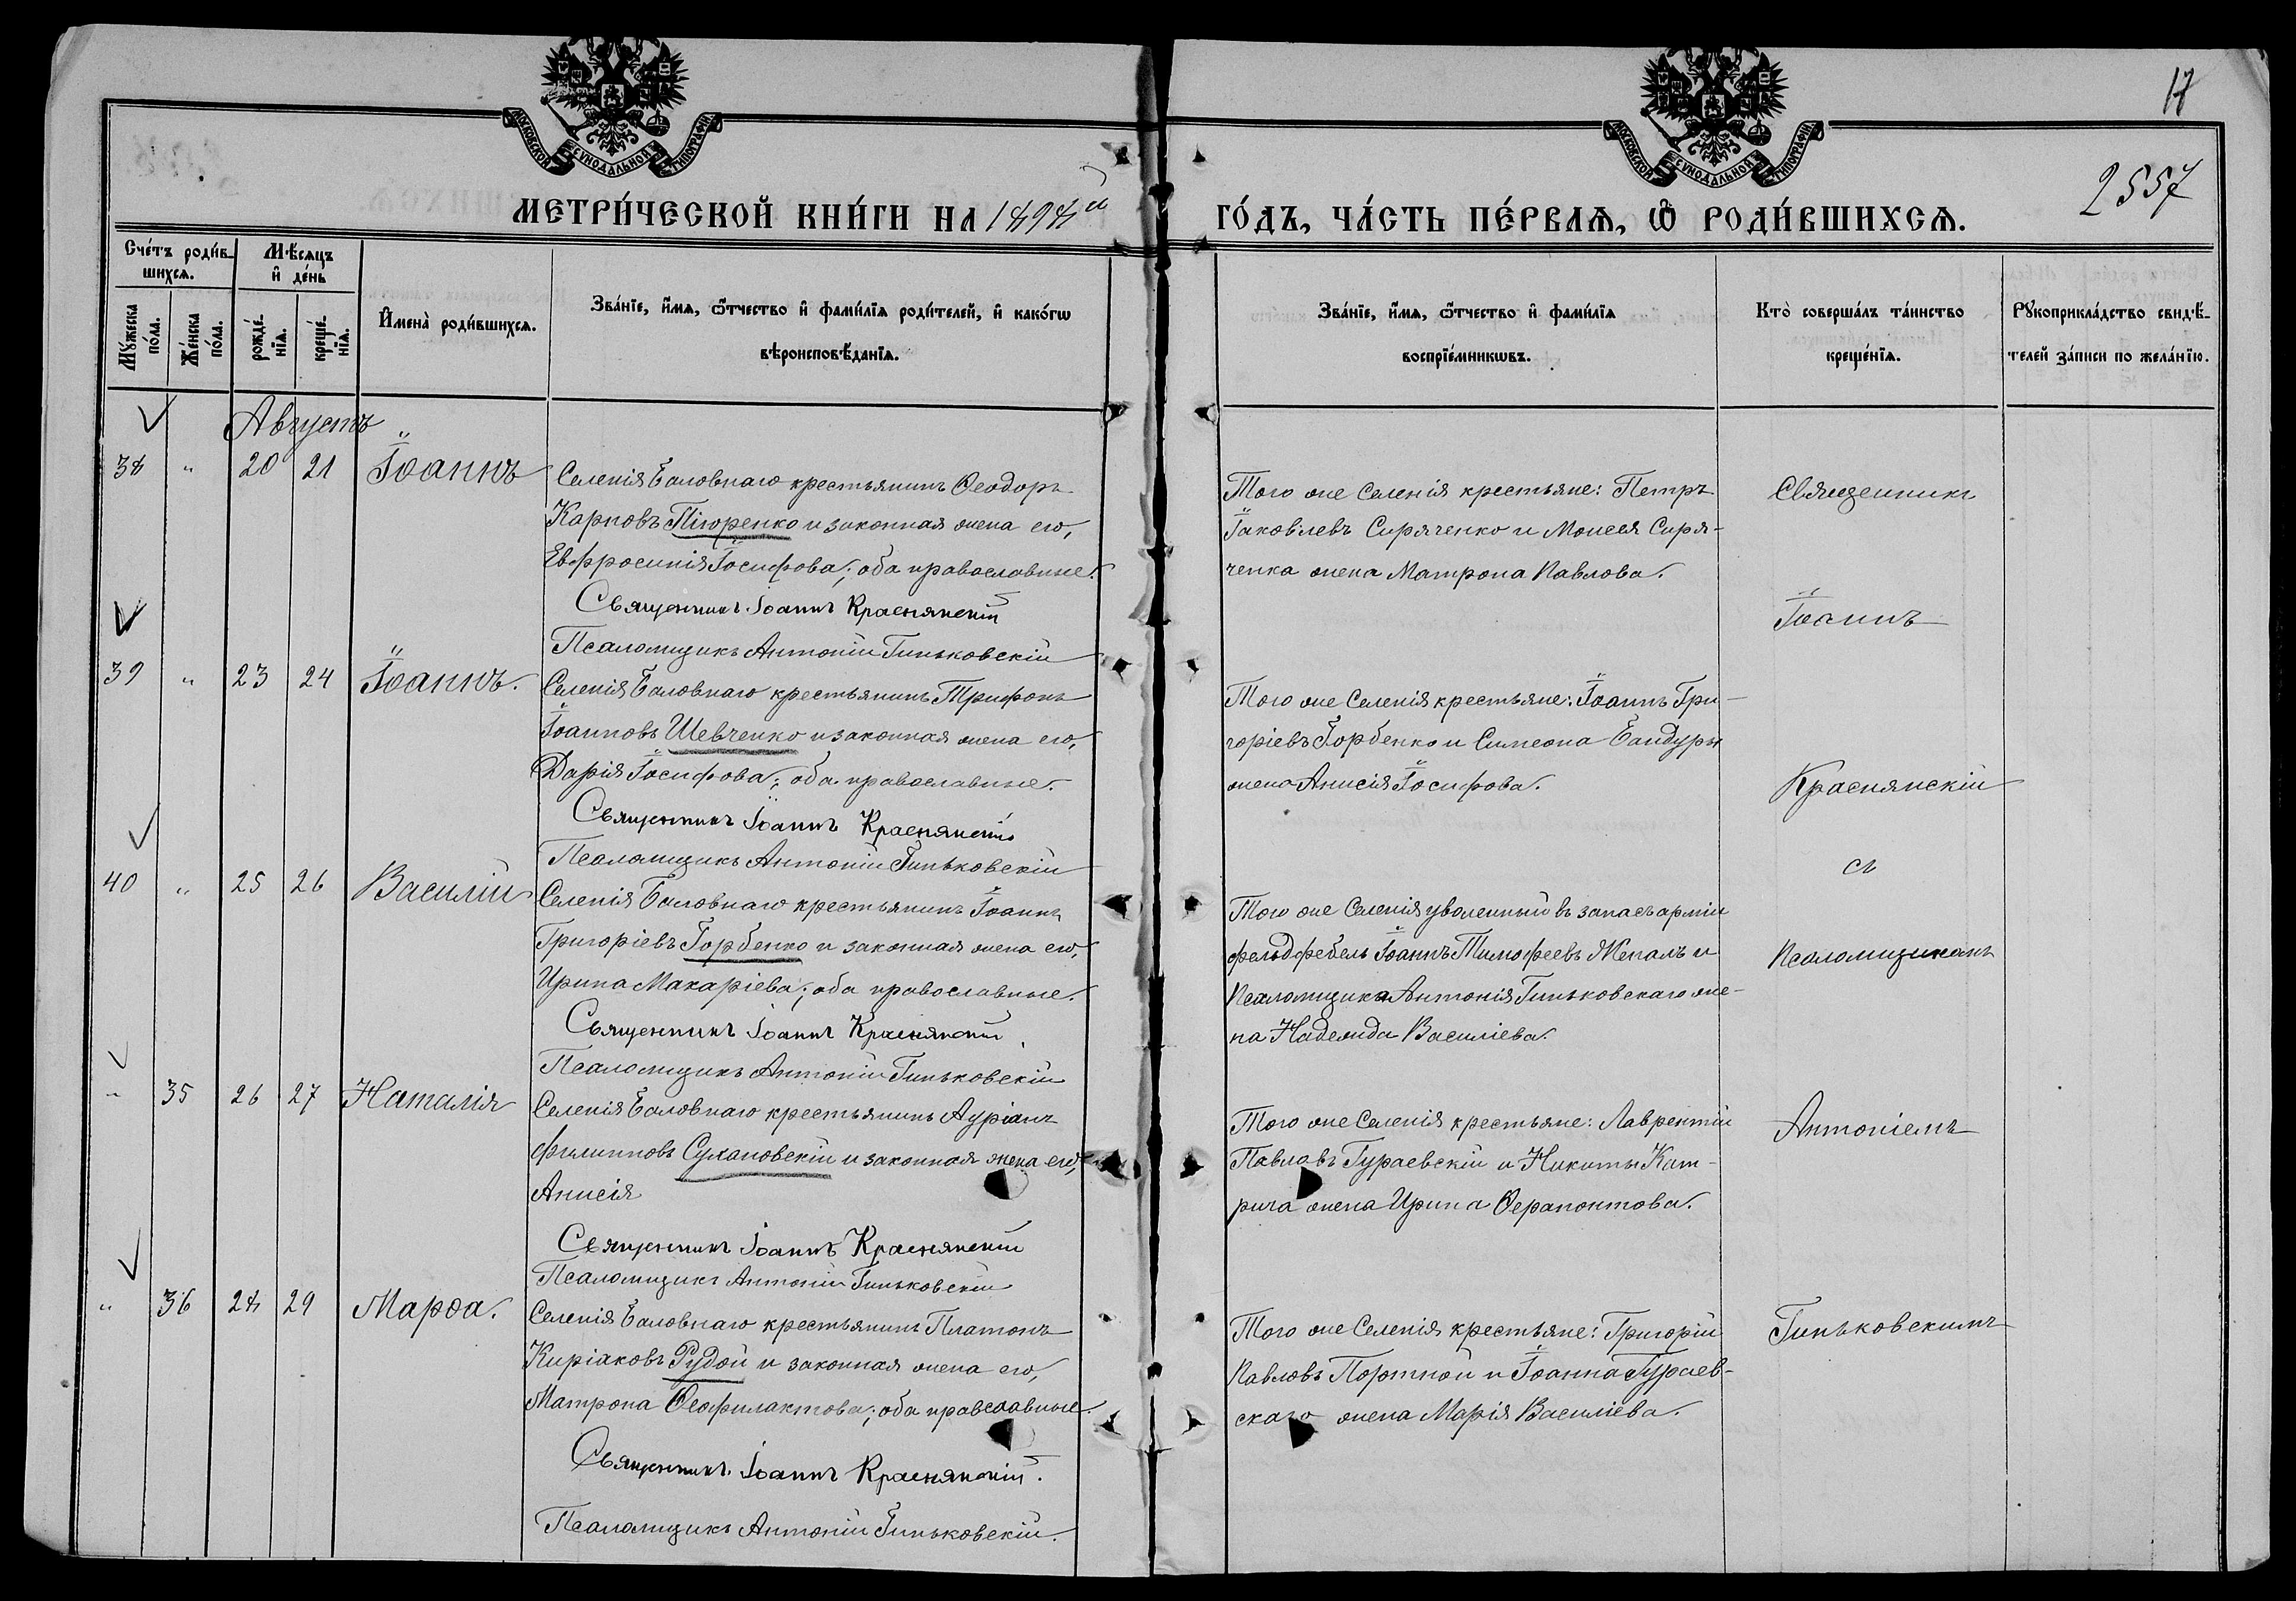 17
2557
МОСКОВСКОЙ СУНОДАЛЬНОЙ ТИПОГРАФІИ
МОСКОВСКОЙ СУНОДАЛЬНОЙ ТИПОГРАФІИ
МЕТРИ́ЧЕСКОЙ КНИ́ГИ НА 1898й ГО́ДЪ, ЧА́СТЬ ПЕ́РВАѦ, Ѡ РОДИ́ВШИХСѦ.
Сче́тъ роди́в-
шихсѧ.
Мѣ́сѧцъ
и҆ де́нь
Мꙋ́жеска
по́ла.
Же́нска
по́ла.
рожде́-
нїѧ.
креще́-
нїѧ.
И҆мена̀ роди́вшихсѧ.
Зва́нїе, и҆́мѧ, ѻ҆́тчество и҆ фами́лїѧ роди́телей, и҆ како́гѡ
вѣроисповѣ́данїѧ.
Зва́нїе, и҆́мѧ, ѻ҆́тчество и҆ фами́лїѧ
воспрїе́мникѡвъ.
Кто̀ соверша́лъ та́инство
креще́нїѧ.
Рꙋкоприкла́дство свидѣ́-
телей за́писи по жела́нїю.
Августъ
38 " 20 21 Іоаннъ
Селенія Баловнаго крестьянинъ Ѳеодоръ
Карповъ Пігоренко и законная жена его,
Евфросинія Іосифова; оба православные.
Священникъ Іоаннъ Краснянскій
Псаломщикъ Антоній Гиньковскій
Того же Селенія крестьяне: Петръ
Іаковлевъ Сиряченко и Моисея Сиря-
ченка жена Матрона Павлова.
Священникъ
Іоаннъ
39 " 23 24 Іоаннъ.
Селенія Баловнаго крестьянинъ Трифонъ
Іоанновъ Шевченко и законная жена его,
Дарія Іосифова; оба православные.
Священникъ Іоаннъ Краснянскій
Псаломщикъ Антоній Гиньковскій
Того же Селенія крестьяне: Іоаннъ Гри-
горіевъ Горбенко и Симеона Бандуры
жена Анисія Іосифова.
Краснянскій
съ
40 " 25 26 Василій
Селенія Баловнаго крестьянинъ Іоаннъ
Григоріевъ Горбенко и законная жена его,
Ирина Макаріева; оба православные.
Священникъ Іоаннъ Краснянскій
Псаломщикъ Антоній Гиньковскій
Того же Селенія уволенный въ запасъ арміи
фельдфебель Іоаннъ Тимофеевъ Жепалъ и
Псаломщика Антонія Гиньковскаго же-
на Надежда Василіева.
Псаломщикомъ
" 35 26 27 Наталія
Селенія Баловнаго крестьянинъ Адріанъ
Филипповъ Сухановскій и законная жена его,
Анисія
Священникъ Іоаннъ Краснянскій
Псаломщикъ Антоній Гиньковскій
Того же Селенія крестьяне: Лаврентій
Павловъ Гураевскій и Никиты Кат-
рича жена Ирина Ѳерапонтова.
Антоніемъ
" 36 28 29 Марѳа.
Селенія Баловнаго крестьянинъ Платонъ
Киріаковъ Рудой и законная жена его,
Матрона Ѳеофилактова; оба православные.
Священникъ Іоаннъ Краснянскій.
Псаломщикъ Антоній Гиньковскій.
Того же Селенія крестьяне: Григорій
Павловъ Портной и Іоанна Гураев-
скаго жена Марія Василіева.
Гиньковскимъ